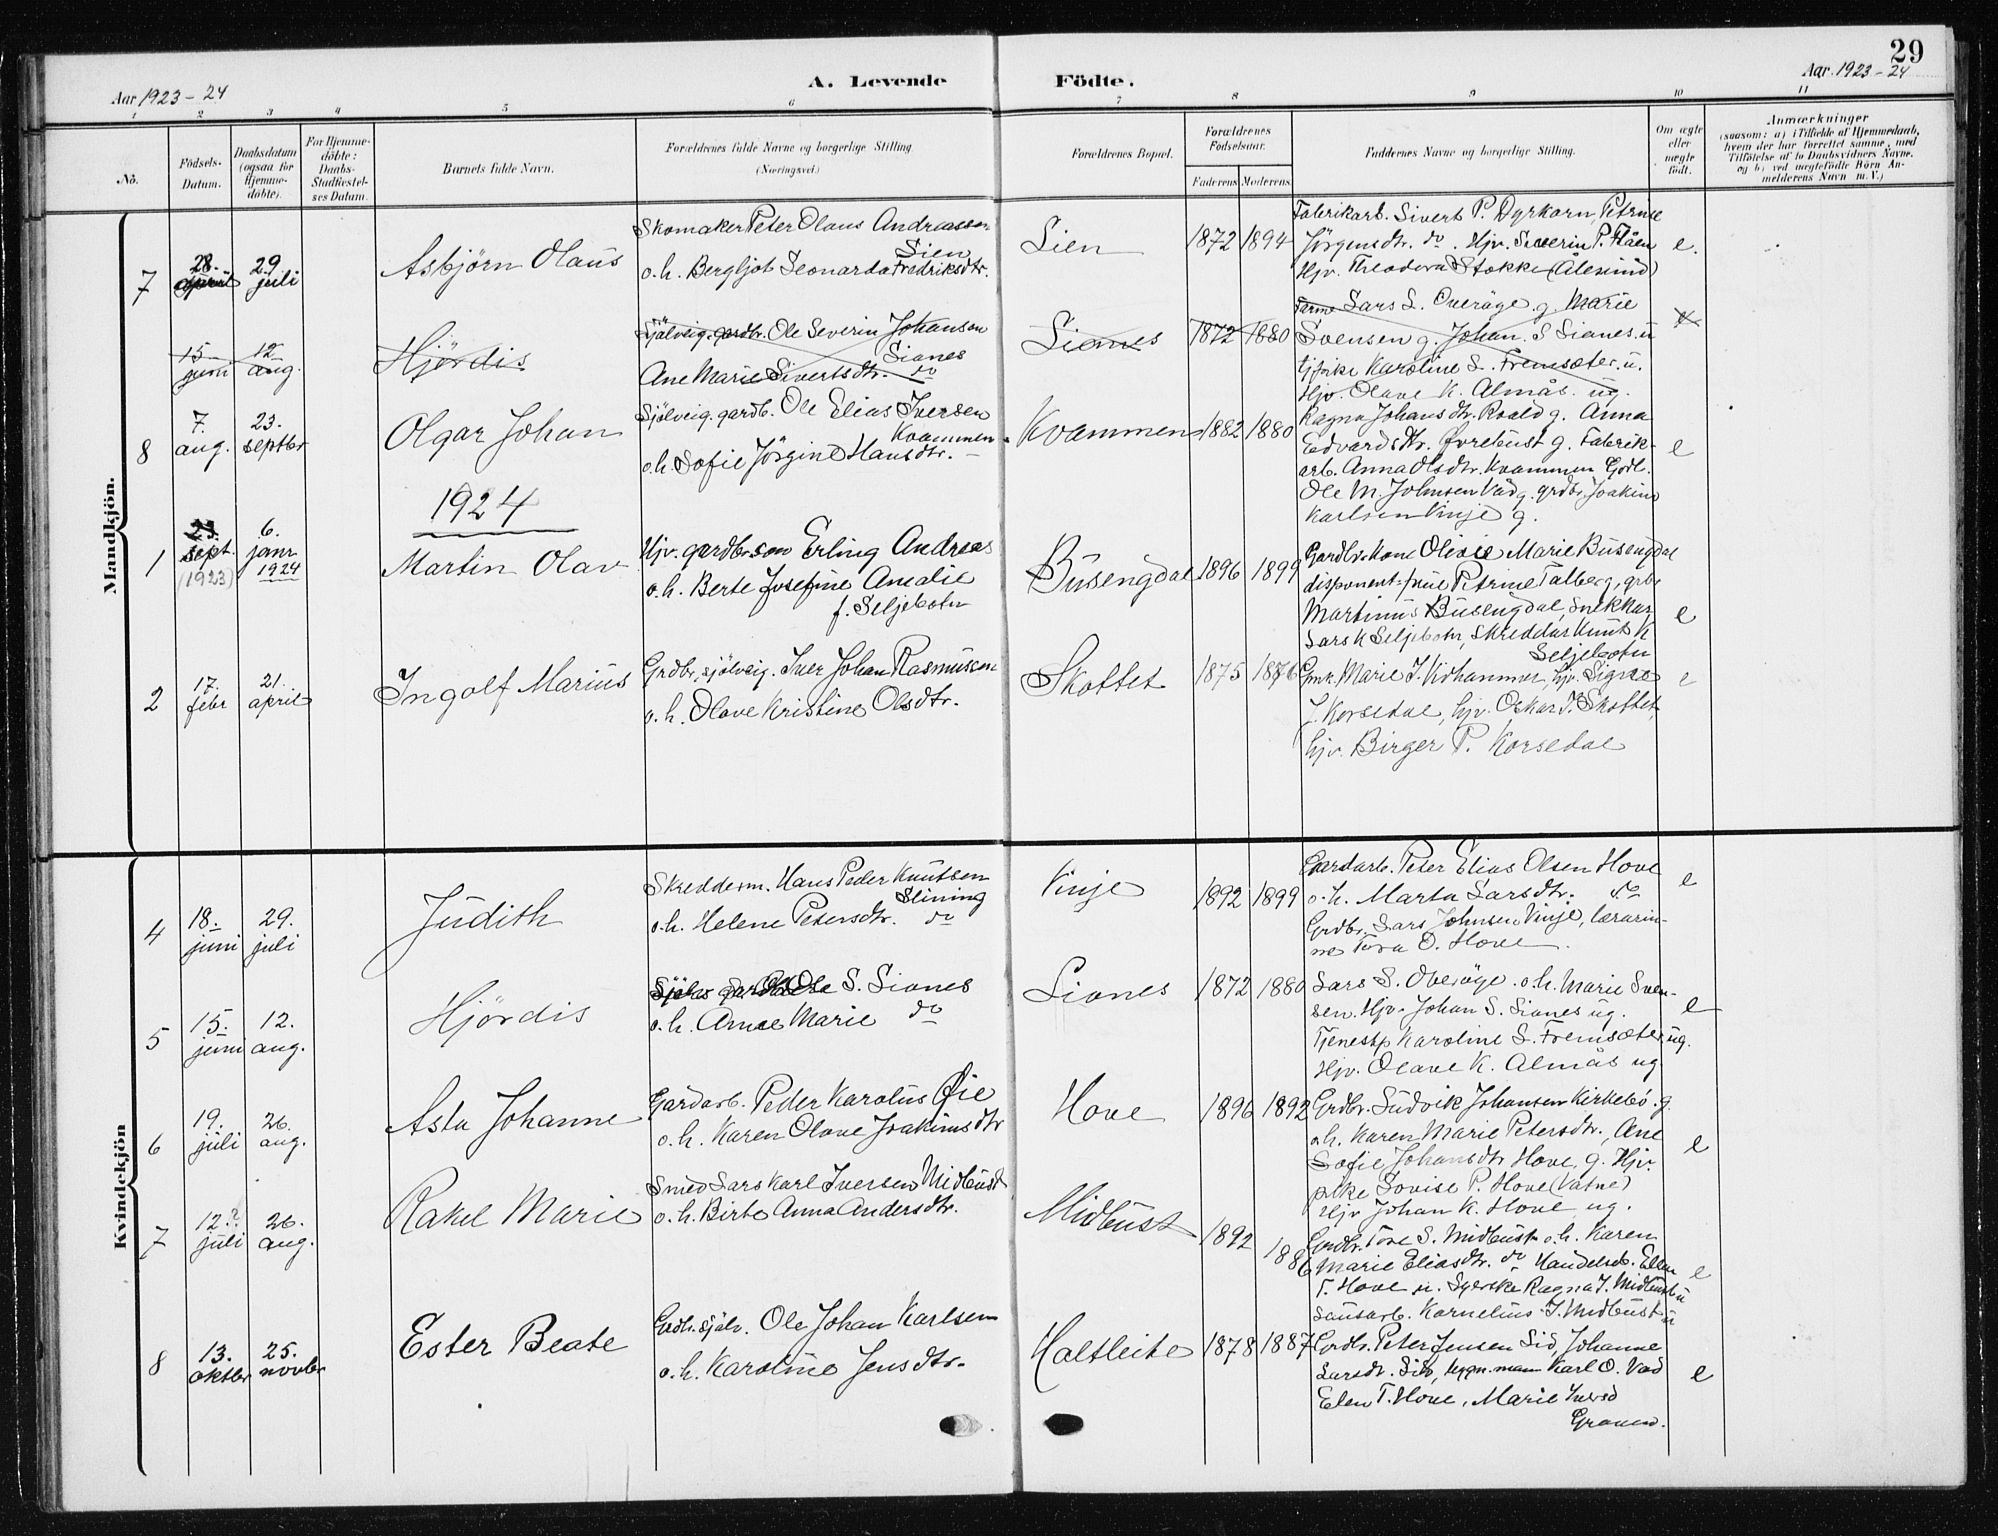 29
Aar 1923-24
A. Levende Födte.
Aar 1923-24
1 2 3 4 5 6 7 8 9 10 11
No.
Födsels-
Datum.
Daabsdatum
(ogsaa for
Hjemme-
döbte).
For Hjemme-
döbte:
Daabs-
Stadfæstel-
ses Datum.
Barnets fulde Navn.
Forældrenes fulde Navne og borgerlige Stilling
(Næringsvei)
Forældrenes Bopæl.
Forældrenes
Födselsaar.
Faderens Moderens
Faddernes Navne og borgerlige Stilling.
Om ægte
eller
uægte
födt.
Anmærkninger
(saasom: a) i Tilfælde af Hjemmedaab,
hvem der har forrettet samme, med
Tilföielse af to Daabsvidners Navne,
og b) ved uægtefödte Börn An-
melderens Navn m. V.)
Mandkjön.
7
28.
april
29.
juli
Asbjörn Olaus
Skomaker Peter Olaus Andreassen
Lien
o.h. Bergljot Leonarda Fredriksdtr.
Lien
1872 1894
Fabrikarb. Sivert P. Dyrkorn, Petrine
Jörgensdtr. do. Hjv. Severin P. Flåen
Hjv. Theodora Stokke (Ålesund)
e.
15
juni
12
aug.
Hjördis
Sjölveig. gardbr. Ole Severin Johansen
Lianes
Ane Marie Sivertsdtr. do
Lianes
1872 1880
Lars L. Överåge g. Marie
Svensen g. Johan S Lianes. u
tjpike Karoline L. Fremsæter. u.
Hjv. Olave K. Almås. ug.
8
7.
aug.
23.
septbr
Olgar Johan
Sjölveig. gardb. Ole Elias Iversen
Kvammen
o.h. Sofie Jörgine Hansdtr.
Kvammen
1882 1880
Ragna Johansdtr. Roald g. Anna
Edvardsdtr. Övrebust g. Fabrik-
arb. Anna Olsdtr. Kvammen Grdb.
Ole M. Johnsen Vad g. grdbr. Joakim
Karlsen Vinje g.
e
1924
1
23.
sept.
(1923)
6.
janr
1924
Martin Olav
Hjv. gardbrson Erling Andreas
o.h. Berte Josefine Amalie
f. Seljebotn
Busengdal
1896 1899
Gardbr.kone Olivie Marie Busengdal
disponent-frue Petrine Talberg, grbr
Martinus Busengdal, Snekkar
Lars K Seljebotn, Skreddar Knut K
Seljebotn
e
2
17.
febr
21.
april
Ingolf Marius
Grdbr, sjölveig. Iver Johan Rasmussen
o.h. Olave Kristine Olsdtr.
Skottet
1875 1876
Gmk. Marie J. Vidhammer, hjv. Signe
J. Korsedal, hjv. Oskar J. Skottet,
hjv. Birger P. Korsedal
e
Kvindekjön
4
18.
juni
29.
juli
Judith
Skredderm. Hans Peder Knutsen
Slining
o.h. Helene Petersdtr. do
Vinje
1892 1899
Gardarb. Peter Elias Olsen Hove
o.h. Marta Larsdtr. do
Grdbr. Lars Johnsen Vinje, lærarin-
ne Tora O. Hove.
e
5
15.
juni
12.
aug.
Hjördis
Ole S. Lianes
o.h. Anne Marie do
Lianes
1872 1880
Lars S. Överåge. o.h. Marie Sven-
sen. Hjv. Johan S. Lianes ug.
Tjenestp Karoline L. Fremsæter, ug.
Hjv. Olave K. Almås ug.
e
6
19.
juli
26.
aug.
Asta Johanne
Gardarb. Peder Karolus Öie
o.h. Karen Olave Joakimsdtr
Hove
1896 1892
Grdbr. Ludvik Johansen Kirkebö. g.
o.h. Karen Marie Petersdtr., Ane
Sofie Johansdtr Hove, g. Hjv.
pike Lovise P. Hove (Vatne)
Hjv Johan K. Hove ug.
e
7
12.?
juli
26.
aug.
Rakel Marie
Smed Lars Karl Iversen Midtbust
o.h. Birte Anna Andersdtr.
Midtbust
1892
1886
Grdbr. Tore S. Midtbust o.h. Karen
Marie Eliasdtr. do Handelsb. Elen
T. Hove u. Syerske Ragna I. Midtbust u
Lausarb. Kornelius I. Midtbust u
e
8
13.
oktbr
25.
novbr
Ester Beate
Grdbr. sjölv. Ole Johan Karlsen
o.h. Karoline Jensdtr.
Holtleite
1878 1887
Grdbr. Peter Jensen Lid, Johanne
Larsdtr. Lid, bygn.mann Karl O. Vad
Elen T. Hove, Marie
Graven.
e